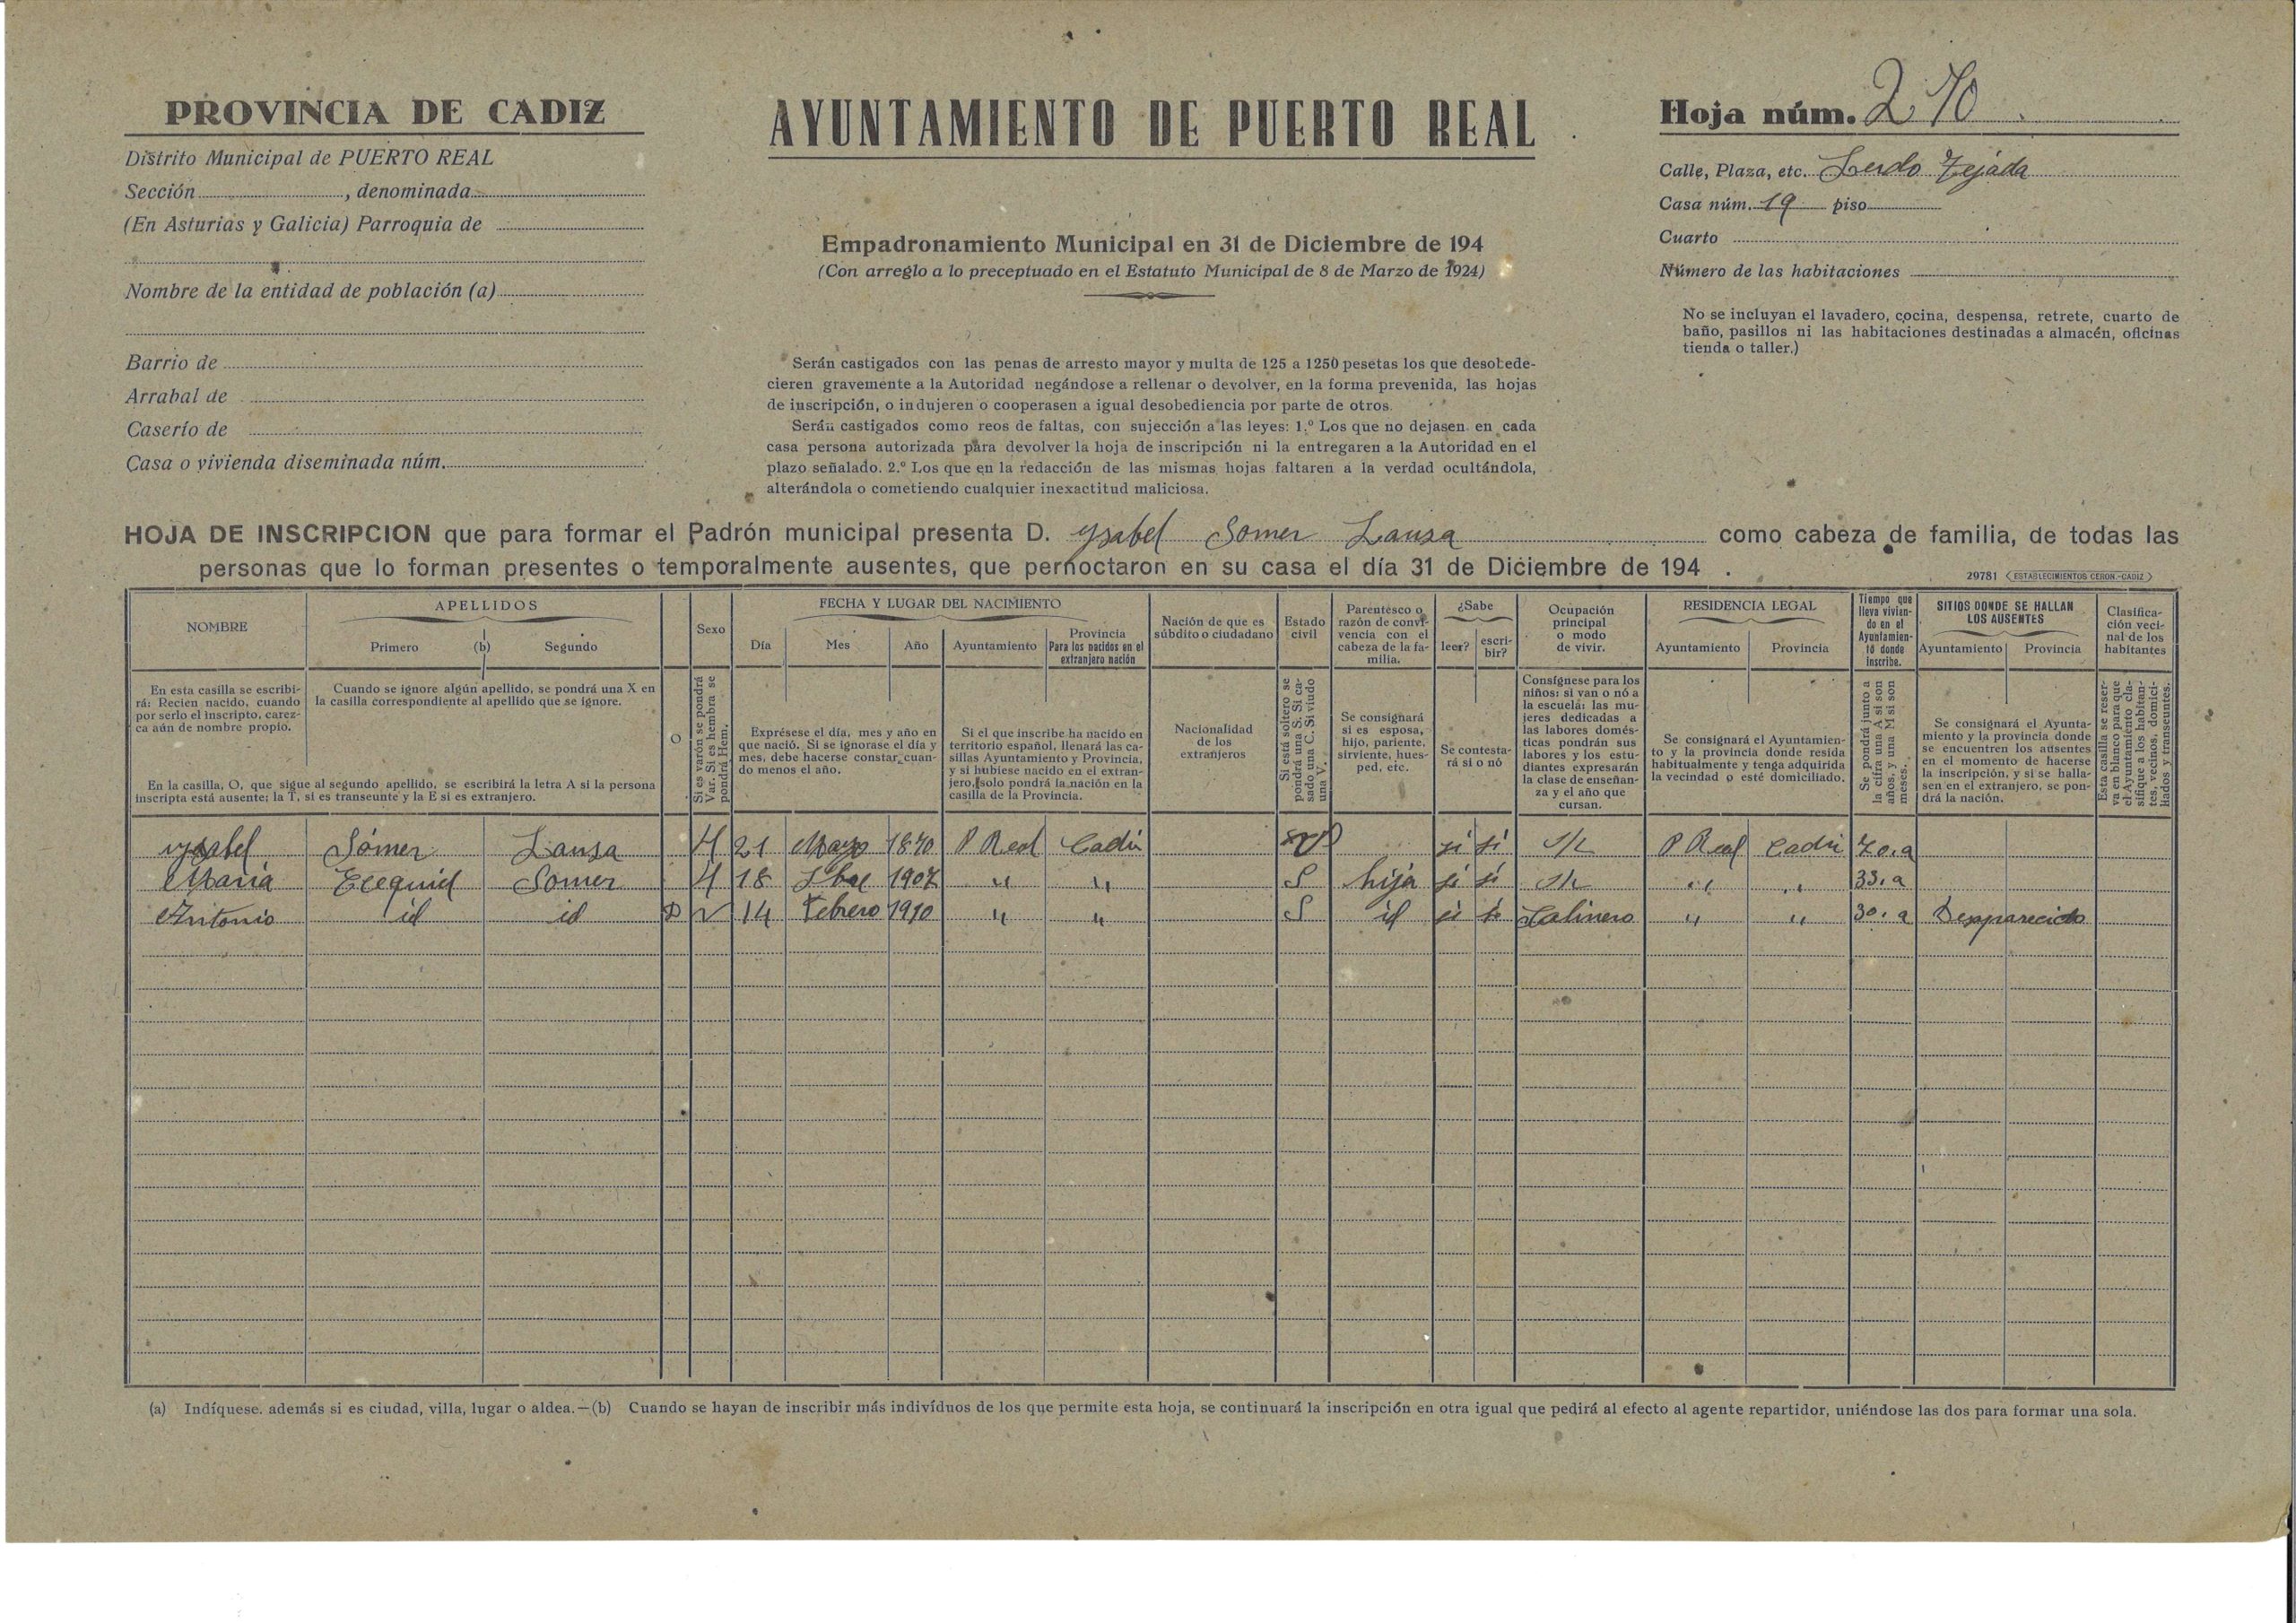 PROVINCIA DE CADIZ
Distrito Municipal de PUERTO REAL
Sección , denominada
(En Asturias y Galicia) Parroquia de
Nombre de la entidad de población (a)
Barrio de
Arrabal de
Caserío de
Casa o vivienda diseminada núm.
AYUNTAMIENTO DE PUERTO REAL
Empadronamiento Municipal en 31 de Diciembre de 194
(Con arreglo a lo preceptuado en el Estatuto Municipal de 8 de Marzo de 1924)
Serán castigados con las penas de arresto mayor y multa de 125 a 1250 pesetas los que desobede-
cieren gravemente a la Autoridad negándose a rellenar o devolver, en la forma prevenida, las hojas
de inscripción, o indujeren o cooperasen a igual desobediencia por parte de otros.
Serán castigados como reos de faltas, con sujección a las leyes: 1.º Los que no dejasen en cada
casa persona autorizada para devolver la hoja de inscripción ni la entregaren a la Autoridad en el
plazo señalado. 2.º Los que en la redacción de las mismas hojas faltaren a la verdad ocultándola,
alterándola o cometiendo cualquier inexactitud maliciosa.
Hoja núm. 270
Calle, Plaza, etc. Lerdo Tejada
Casa núm. 19 piso
Cuarto
Número de las habitaciones
No se incluyan el lavadero, cocina, despensa, retrete, cuarto de
baño, pasillos ni las habitaciones destinadas a almacén, oficinas
tienda o taller.)
HOJA DE INSCRIPCION que para formar el Padrón municipal presenta D. Ysabel Somer Lansa como cabeza de familia, de todas las
personas que lo forman presentes o temporalmente ausentes, que pernoctaron en su casa el día 31 de Diciembre de 194 .
29781 (ESTABLECIMIENTOS CERON.-CADIZ)
NOMBRE
APELLIDOS
Primero (b) Segundo
O
Sexo
FECHA Y LUGAR DEL NACIMIENTO
Día Mes Año Ayuntamiento
Provincia
Para los nacidos en el
extranjero nación
Nación de que es
súbdito o ciudadano
Estado
civil
Parentesco o
razón de convi-
vencia con el
cabeza de la fa-
milia.
¿Sabe
leer? escri-
bir?
Ocupación
principal
o modo
de vivir.
RESIDENCIA LEGAL
Ayuntamiento Provincia
Tiempo que
lleva vivien-
do en el
Ayuntamien-
to donde
inscribe.
SITIOS DONDE SE HALLAN
LOS AUSENTES
Ayuntamiento Provincia
Clasifica-
ción veci-
nal de los
habitantes
En esta casilla se escribi-
rá: Recien nacido, cuando
por serlo el inscripto, carez-
ca aún de nombre propio.
Cuando se ignore algún apellido, se pondrá una X en
la casilla correspondiente al apellido que se ignore.
En la casilla, O, que sigue al segundo apellido, se escribirá la letra A si la persona
inscripta está ausente; la T, si es transeunte y la E si es extranjero.
Si es varón se pondrá
Var. Si es hembra se
pondrá Hem.
Exprésese el día, mes y año en
que nació. Si se ignorase el día y
mes, debe hacerse constar cuan-
do menos el año.
Si el que inscribe ha nacido en
territorio español, llenará las ca-
sillas Ayuntamiento y Provincia,
y si hubiese nacido en el extran-
jero, solo pondrá la nación en la
casilla de la Provincia.
Nacionalidad
de los
extranjeros
Si está soltero se
pondrá una S. Si ca-
sado una C. Si viudo
una V.
Se consignará
si es esposa,
hijo, pariente,
sirviente, hues-
ped, etc.
Se contesta-
rá si o nó
Consígnese para los
niños: si van o nó a
la escuela: las mu-
jeres dedicadas a
las labores domés-
ticas pondrán sus
labores y los estu-
diantes expresarán
la clase de enseñan-
za y el año que
cursan.
Se consignará el Ayuntamien-
to y la provincia donde resida
habitualmente y tenga adquirida
la vecindad o esté domiciliado.
Se pondrá junto a
la cifra una A si son
años, y una M si son
meses.
Se consignará el Ayunta-
miento y la provincia donde
se encuentren los ausentes
en el momento de hacerse
la inscripción, y si se halla-
sen en el extranjero, se pon-
drá la nación.
Esta casilla se reser-
va en blanco para que
el Ayuntamiento cla-
sifique a los habitan-
tes, vecinos, domici-
liados y transeuntes.
Ysabel Sómer Lansa H 21 Mayo 1870 P Real Cadiz si si S/L P Real Cadiz 70.a
Maria Ecequiel Somer H 18 1907 " " S hija si si S/L " " 33.a
Antonio id id D V 14 Febrero 1910 " " S id si si Salinero " " 30.a Desaparecido
(a) Indíquese. además si es ciudad, villa, lugar o aldea.—(b) Cuando se hayan de inscribir más indivíduos de los que permite esta hoja, se continuará la inscripción en otra igual que pedirá al efecto al agente repartidor, uniéndose las dos para formar una sola.